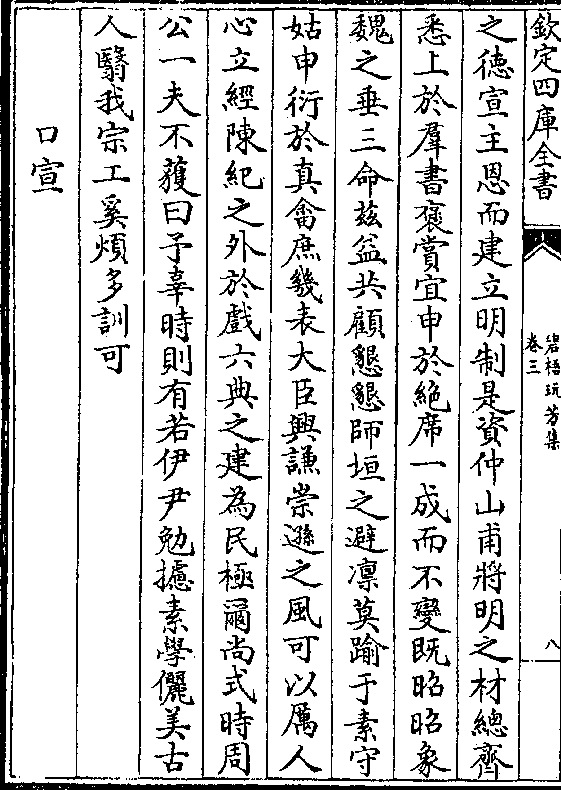 欽定四庫全書
碧梧玩芳集
卷三
八
之徳宣主恩而建立明制是資仲山甫將明之材總齊
悉上於羣書襃賞宜申於絶席一成而不變既昭昭象
魏之垂三命兹益共顧懇懇師垣之避凛莫踰于素守
姑申衍於真畬庶幾表大臣興謙崇遜之風可以厲人
心立經陳紀之外於戲六典之建為民極爾尚式時周
公一夫不獲曰予辜時則有若伊尹勉攄素學儷美古
人翳我宗工奚煩多訓可
口宣